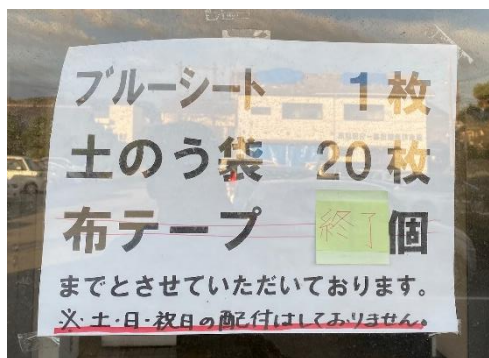 ブルーシート 1枚
土のう袋 20枚
布テープ 終了個
までとさせていただいております。
※・土・日・祝日の配付はしておりません。